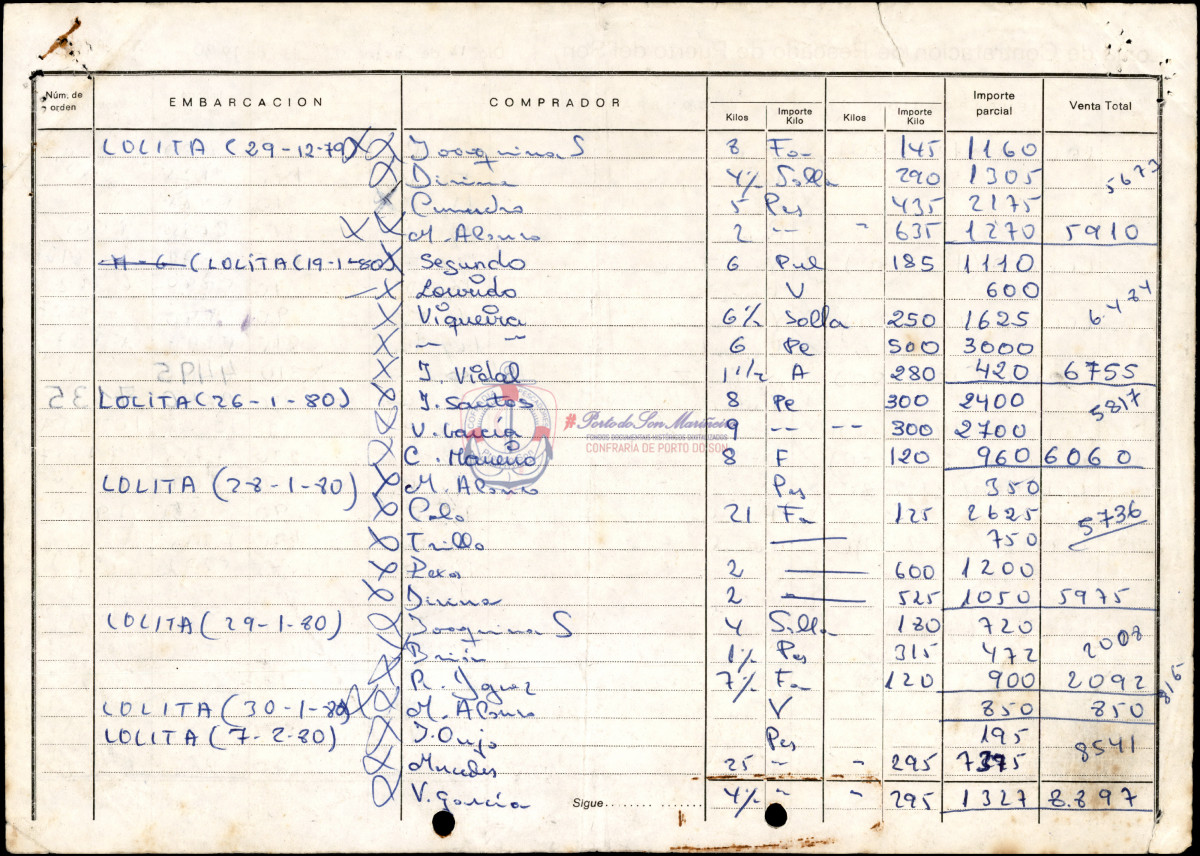 Núm. de orden EMBARCACION COMPRADOR Kilos Importe Kilo Kilos Importe Kilo Importe parcial Venta Total
LOLITA (29-12-79) Joaquina S 8 Fa 145 1160
Dirina 4½ Solla 290 1305 5673
5 Pes 435 2175
M. Alonso 2 -- - 635 1270 5910
(LOLITA (19-1-80) Segundo 6 Pul 185 1110
Lourido V 600
Viqueira 6½ Solla 250 1625
6 Pe 500 3000
J. Vidal 1½ A 280 420 6755
LOLITA (26-1-80) J. Santos 8 Pe 300 2400
V. García 9 -- -- 300 2700 5817
#Porto do Son Mariñeiro
FONDOS DOCUMENTAIS HISTÓRICOS DIXITALIZADOS
CONFRARÍA DE PORTO DO SON
C. Moreno 8 F 120 960 6060
LOLITA (28-1-80) M. Alonso Pes 350
Calo 21 Fa 125 2625 5736
Trillo 750
2 600 1200
Dirina 2 525 1050 5975
LOLITA (29-1-80) Joaquina S 4 Solla 180 720
Brión 1½ Pes 315 472 2008
7½ Fa 120 900 2092
LOLITA (30-1-80) M. Alonso V 850 850 816
LOLITA (7-2-80) J. Oujo Pes 195
25 - - 295 7375 8541
V. García 4½ " - 295 1327 8.897
Sigue